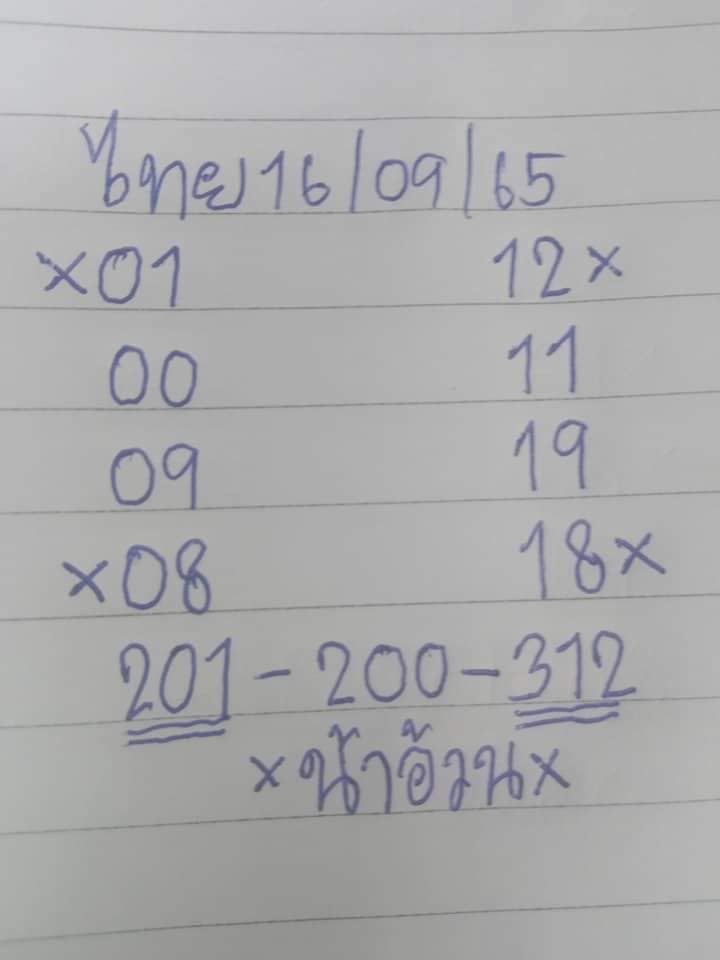 ไทย16/09/65
×01 12×
00 11
09 19
×08 18×
201-200-312
×น้าอ้วน×